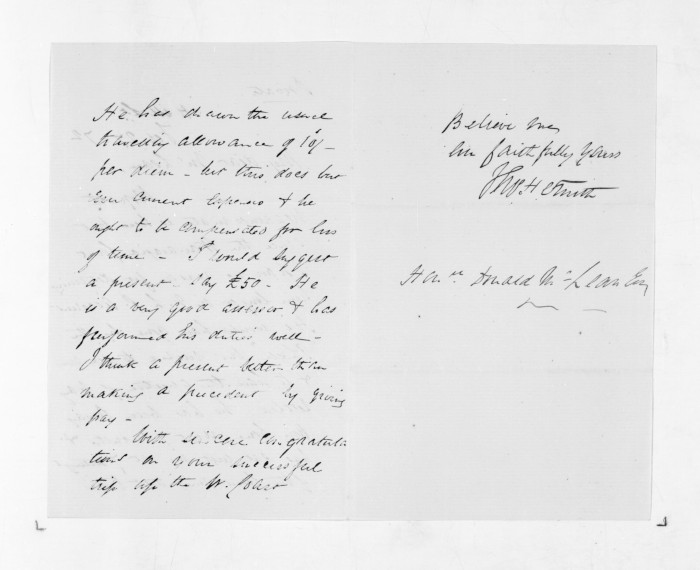 He has drawn the usual
travelling allowance of 10/-
per diem - but this does but
cover current expenses & he
ought to be compensated for loss
of time - I would suggest
a present - say £50 - He
is a very good assessor & has
performed his duties well -
I think a present better than
making a precedent by giving
pay -
With sincere congratula
tions on your successful
trip up the W. Coast
Believe me
am faithfully yours
Thos H Smith
Honble Donald McLean Esq